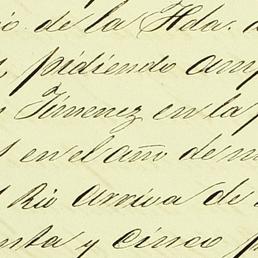 io de la Hda.
pidiendo amp
Jimenez en la
s en el año de m
Rio Arriva de
nta y cinco p